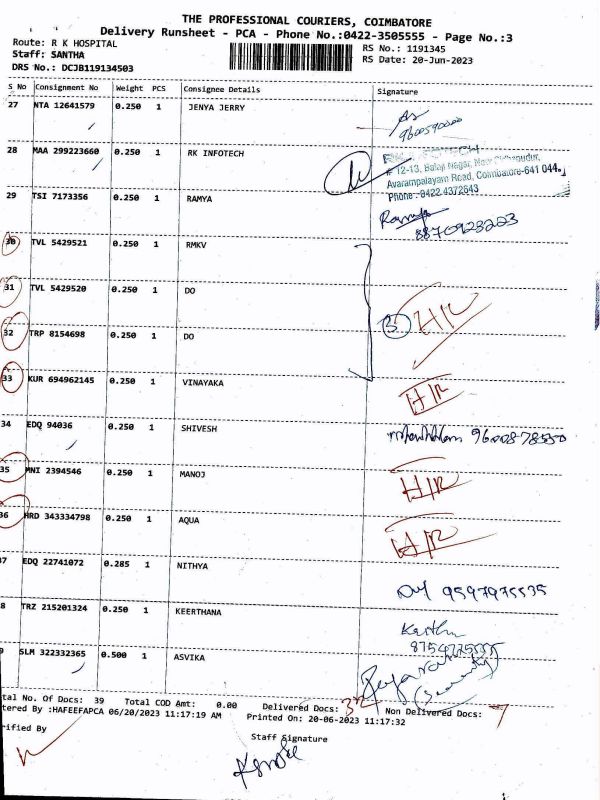 THE PROFESSIONAL COURIERS, COIMBATORE
Delivery Runsheet - PCA - Phone No.:0422-3505555 - Page No.:3
Route: R K HOSPITAL
RS No.: 1191345
Staff: SANTHA
RS Date: 20-Jun-2023
DRS No.: DCJB119134503
S No Consignment No Weight PCS Consignee Details Signature
27 NTA 12641579 0.250 1 JENYA JERRY
28 MAA 299223660 0.250 1 RK INFOTECH
# 12-13, Balaji Nagar, New Sidhapudur,
Avarampalayam Road, Coimbatore-641 044.
Phone : 0422 4372643
29 TSI 7173356 0.250 1 RAMYA
Ramya
8870923223
30 TVL 5429521 0.250 1 RMKV
31 TVL 5429520 0.250 1 DO
3 H/R
32 TRP 8154698 0.250 1 DO
33 KUR 694962145 0.250 1 VINAYAKA
H/R
34 EDQ 94036 0.250 1 SHIVESH
9600878550
35 MNI 2394546 0.250 1 MANOJ H/R
36 HRD 343334798 0.250 1 AQUA H/R
37 EDQ 22741072 0.285 1 NITHYA
9597975535
8 TRZ 215201324 0.250 1 KEERTHANA
Keerthu
SLM 322332365 0.500 1 ASVIKA
(Security)
tal No. Of Docs: 39 Total COD Amt: 0.00 Delivered Docs: 32 Non Delivered Docs: 7
tered By :HAFEEFAPCA 06/20/2023 11:17:19 AM Printed On: 20-06-2023 11:17:32
rified By
Staff Signature